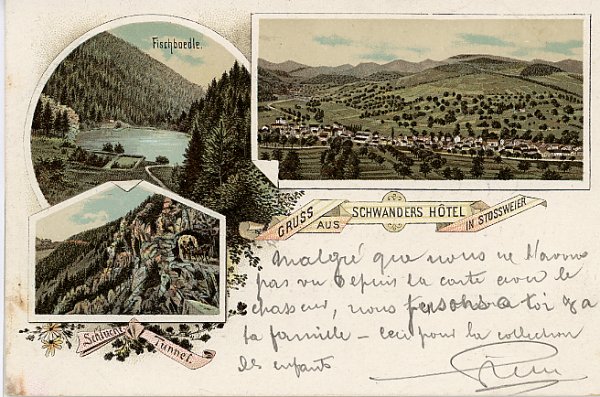 Fischboedle.
GRUSS
AUS
SCHWANDERS HÔTEL
IN STOSSWEIER
Schlucht
Tunnel.
Malgré que nous ne t'avons
pas vu depuis la carte avec le
chasseur, nous pensons a toi & a
ta famille – ceci pour la collection
des enfants